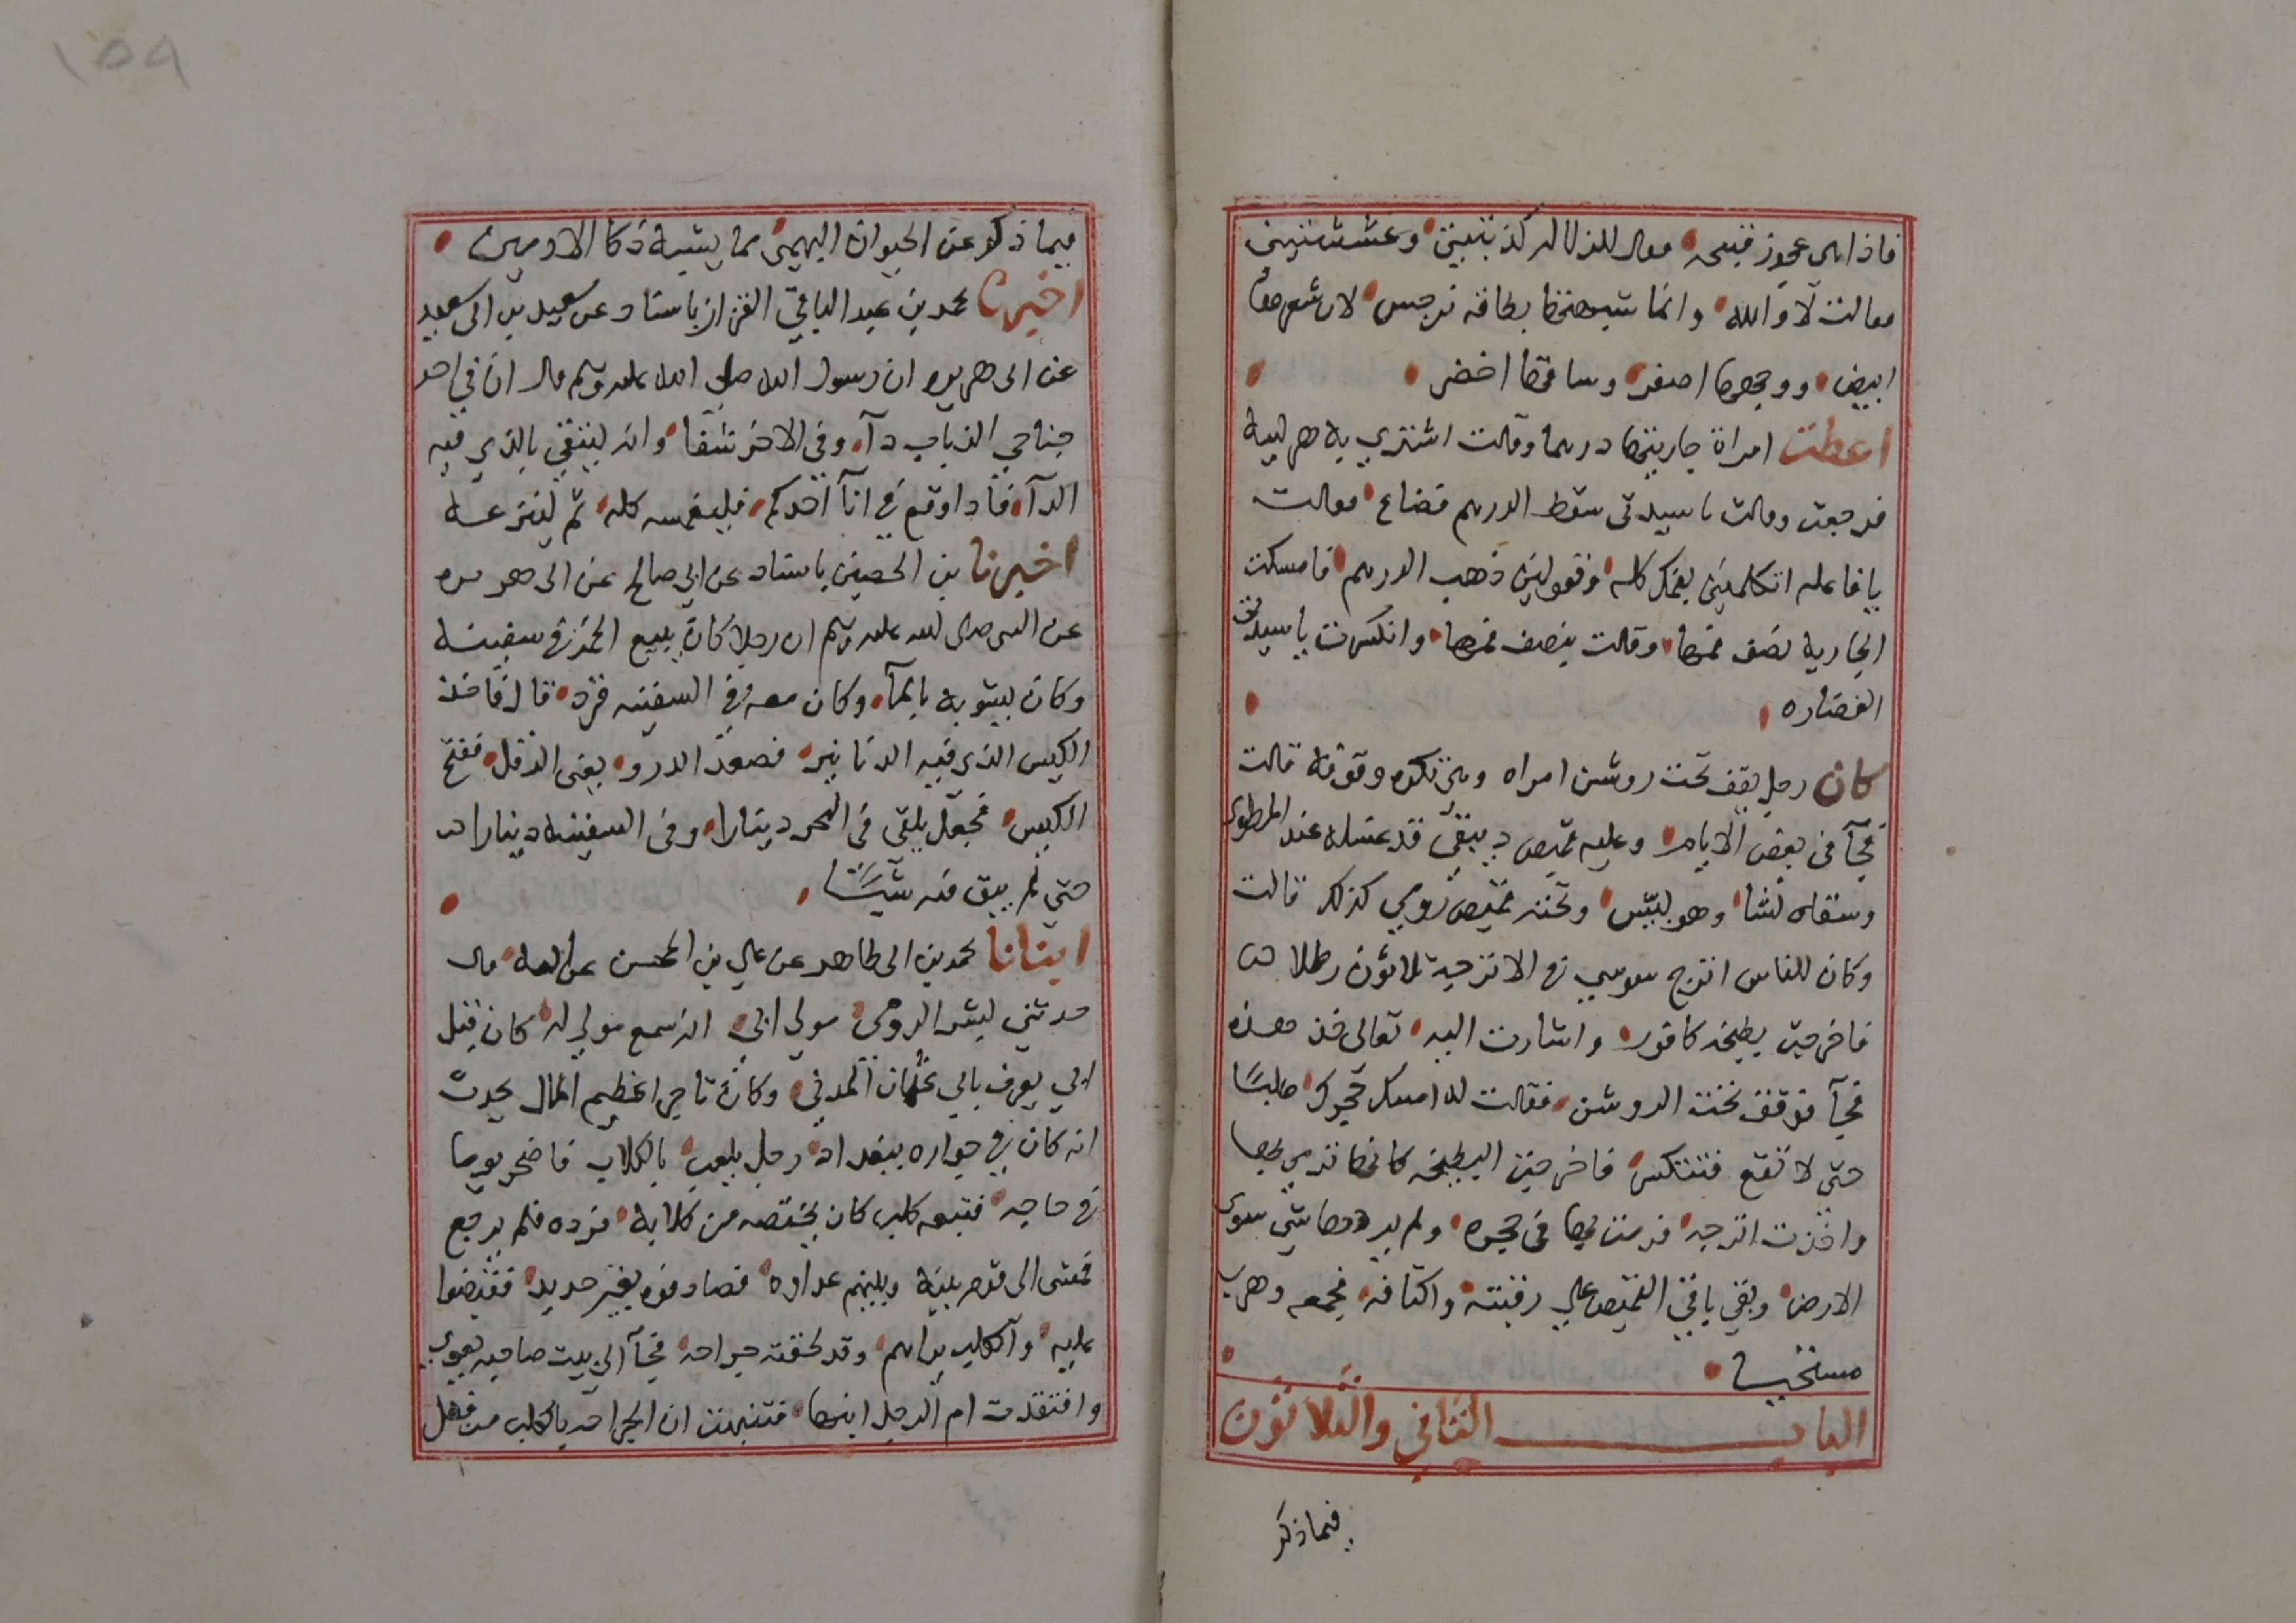 فاذا هى عجوز قبيحه فقال للدلاله كذبتينى وغششتينى
فقالت لا والله وانما شبهتها بطاقه نرجس لان شعرها
ابيض ووجهها اصفر وساقها اخضر
اعطت امراة جاريتها درهما وقالت اشتري به هريسة
فرجعت وقالت يا سيدتى سقط الدرهم فضاع فقالت
يا فاعله اتكلمينى بفمك كله وتقولين ذهب الدرهم فامسكت
الجارية نصف فمها وقالت بنصف فمها وانكسرت يا سيدتى
الغضاره
كان رجل يقف تحت روشن امراه وهى تكره وقوفه قالت
فجآ فى بعض الايام وعليه قميص دبيقي قد غسله عند المطرى
وسقاه نشا وهو لبيس وتحته قميص رومي كذلك قالت
وكان للناس اترج سوسي فى الاترجة ثلاثون رطلا
فاخرجت بطيخه كافور واشارت اليه تعالى خذ هذه
فجآ فوقف تحت الروشن فقالت له امسك حجرك صلبًا
حتى لا تقع فتنكس فاخرجت البطيخه كانها ترمي بها
واخذت اترجه فرمت بها فى حجره ولم يردها شي سوى
الارض وبقي باقي القميص علي رقبته واكتافه فجمعه وهرب
مستحييا
الباب الثاني والثلاثون
فيما ذكر
١٥٩
فيما ذكر عن الحيوان البهيمى مما يشبه ذكا الادميين
اخبرنا محمد بن عبد الباقي القزاز باسناد عن سعيد بن ابى سعيد
عن ابى هريره ان رسول الله صلى الله عليه وسلم قال ان في احد
جناحي الذباب دآ وفى الاخر شفا وانه ليتقي بالذي فيه
الدآ فاذا وقع في انآ احدكم فليغمسه كله ثم لينزعه
اخبرنا بن الحصين باسناد عن ابي صالح عن ابى هريره
عن النبى صلى الله عليه وسلم ان رجلا كان يبيع الخمر فى سفينه
وكان يشوبه بالمآ وكان معه في السفينه قرد قال فاخذ
الكيس الذى فيه الدنانير فصعد الدرو يعنى الدقل ففتح
الكيس فجعل يلقى فى البحر دينارا وفى السفينه دينارا
حتى لم يبق منه شيئا
انبانا محمد بن ابى طاهر عن علي بن المحسن عن ابيه قال
حدثني ليشر الرومى مولي ابي انه سمع مولي له كان قبل
ابي يعرف بابي عثمان المدني وكان تاجرا عظيم المال يحدث
انه كان في جواره ببغداد رجل يلعب بالكلاب فاصحر يوما
فى حاجه فتبعه كلب كان يختصه من كلابه فرده فلم يرجع
فمشى الى قوم بينه وبينهم عداوه فصادفوه بغير حديد فقبضوا
عليه والكلب يراهم وقد لحقته جراحه فجآ الي بيت صاحبه يعوي
وافتقدت ام الرجل ابنها فتنبهت ان الجراحه بالكلب من فعل